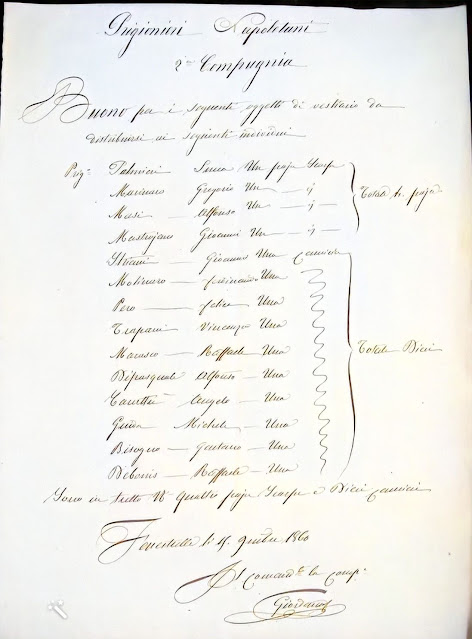 Prigionieri Napoletani
2ª Compagnia
Buono per i seguenti oggetti di vestiario da
distribuirsi ai seguenti individui
Prig.i Palmieri Luca Un pajo Scarpe
Marinaro Gregorio Un — ij
Masi — Alfonso Un — ij —
Mastrojani Giovanni Un — ij
Totale 4 paja
Giovanni Una camicia
Molinaro — Ferdinando Una
Pero — Felice Una
Trapani Vincenzo Una
Marasco — Raffaele Una
Depasquale Alfonso — Una
Angelo — Una
Guida Michele — Una
Bisogno — Gaetano — Una
Debonis — Raffaele — Una
Totale Dieci
Sono in tutto N° quattro paja Scarpe e Dieci camicie
Fenestrelle li 15 9mbre 1860
Il Comand.te la Comp.a
Giordano